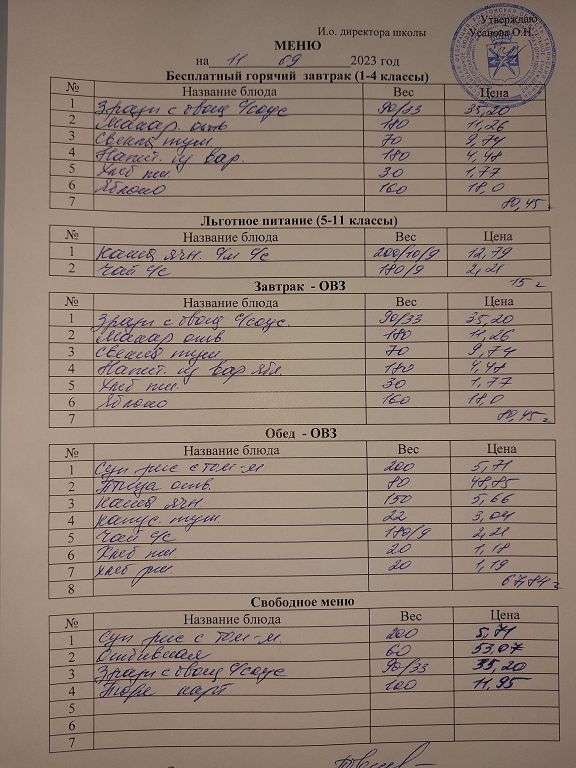 Утверждаю
И.о. директора школы Усанова О.Н.
МЕНЮ
на 11 09 2023 год
Бесплатный горячий завтрак (1-4 классы)
№ Название блюда Вес Цена
1 Зразы с овощ с/соус 90/33 35,20
2 Макар. отв 180 11,26
3 Свекла туш. 70 9,74
4 Напит. из вар. 180 4,48
5 Хлеб пш. 30 1,77
6 Яблоко 160 18,0
7 80,45
Льготное питание (5-11 классы)
№ Название блюда Вес Цена
1 Каша ячн. с/м с/с 200/10/9 12,79
2 Чай с/с 180/9 2,21
15
Завтрак - ОВЗ
№ Название блюда Вес Цена
1 Зразы с овощ с/соус. 90/33 35,20
2 Макар отв. 180 11,26
3 Свекла туш. 70 9,74
4 Напит. из вар ябл. 180 4,48
5 Хлеб пш. 30 1,77
6 Яблоко 160 18,0
7 80,45
Обед - ОВЗ
№ Название блюда Вес Цена
1 Суп рис с том-м 200 5,71
2 Птица отв. 80 48,85
3 Каша ячн. 150 5,66
4 Капус. туш. 22 3,04
5 Чай с/с 180/9 2,21
6 Хлеб пш 20 1,18
7 хлеб рж. 20 1,19
8 67,84
Свободное меню
№ Название блюда Вес Цена
1 Суп рис с том-м. 200 5,71
2 Отбивная 60 53,07
3 Зразы с овощ с/соус 90/33 35,20
4 Пюре карт 100 11,95
5
6
7